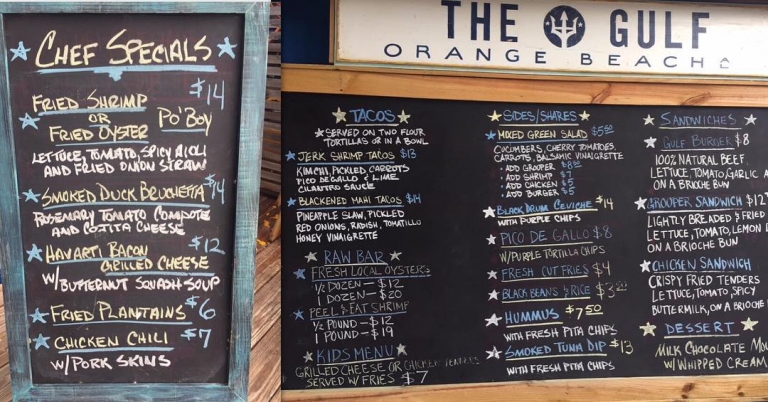 CHEF SPECIALS
$14
FRIED SHRIMP
OR PO'BOY
FRIED OYSTER
LETTUCE, TOMATO, SPICY AIOLI
AND FRIED ONION STRAW
SMOKED DUCK BRUCHETTA $14
ROSEMARY TOMATO COMPOTE
AND COJITA CHEESE
HAVARTI BACON $12
GRILLED CHEESE
W/ BUTTERNUT SQUASH SOUP
FRIED PLANTAINS $6
CHICKEN CHILI $7
W/ PORK SKINS
THE GULF
ORANGE BEACH
TACOS
SERVED ON TWO FLOUR
TORTILLAS OR IN A BOWL
JERK SHRIMP TACOS $13
KIMCHI, PICKLED CARROTS
PICO DE GALLO & LIME
CILANTRO SAUCE
BLACKENED MAHI TACOS $14
PINEAPPLE SLAW, PICKLED
RED ONIONS, RADISH, TOMATILLO
HONEY VINAIGRETTE
RAW BAR
FRESH LOCAL OYSTERS
½ DOZEN - $12
1 DOZEN - $20
PEEL & EAT SHRIMP
½ POUND - $12
1 POUND - $19
KIDS MENU
GRILLED CHEESE OR CHICKEN TENDERS
SERVED W/ FRIES $7
SIDES/SHARES
MIXED GREEN SALAD $5.00
CUCUMBERS, CHERRY TOMATOES,
CARROTS, BALSAMIC VINAIGRETTE
ADD GROUPER
ADD SHRIMP $7
ADD CHICKEN $5
ADD BURGER $5
BLACK DRUM CEVICHE $14
WITH PURPLE CHIPS
PICO DE GALLO $8
W/ PURPLE TORTILLA CHIPS
FRESH CUT FRIES $4
BLACK BEANS & RICE
HUMMUS $7.50
WITH FRESH PITA CHIPS
SMOKED TUNA DIP $13
WITH FRESH PITA CHIPS
SANDWICHES
GULF BURGER $8
100% NATURAL BEEF
LETTUCE, TOMATO, GARLIC A
ON A BRIOCHE BUN
GROUPER SANDWICH $12
LIGHTLY BREADED & FRIED
LETTUCE, TOMATO, LEMON
ON A BRIOCHE BUN
CHICKEN SANDWICH
CRISPY FRIED TENDERS
LETTUCE, TOMATO, SPICY
BUTTERMILK, ON A BRIOCHE
DESSERT
MILK CHOCOLATE MO
W/ WHIPPED CREAM